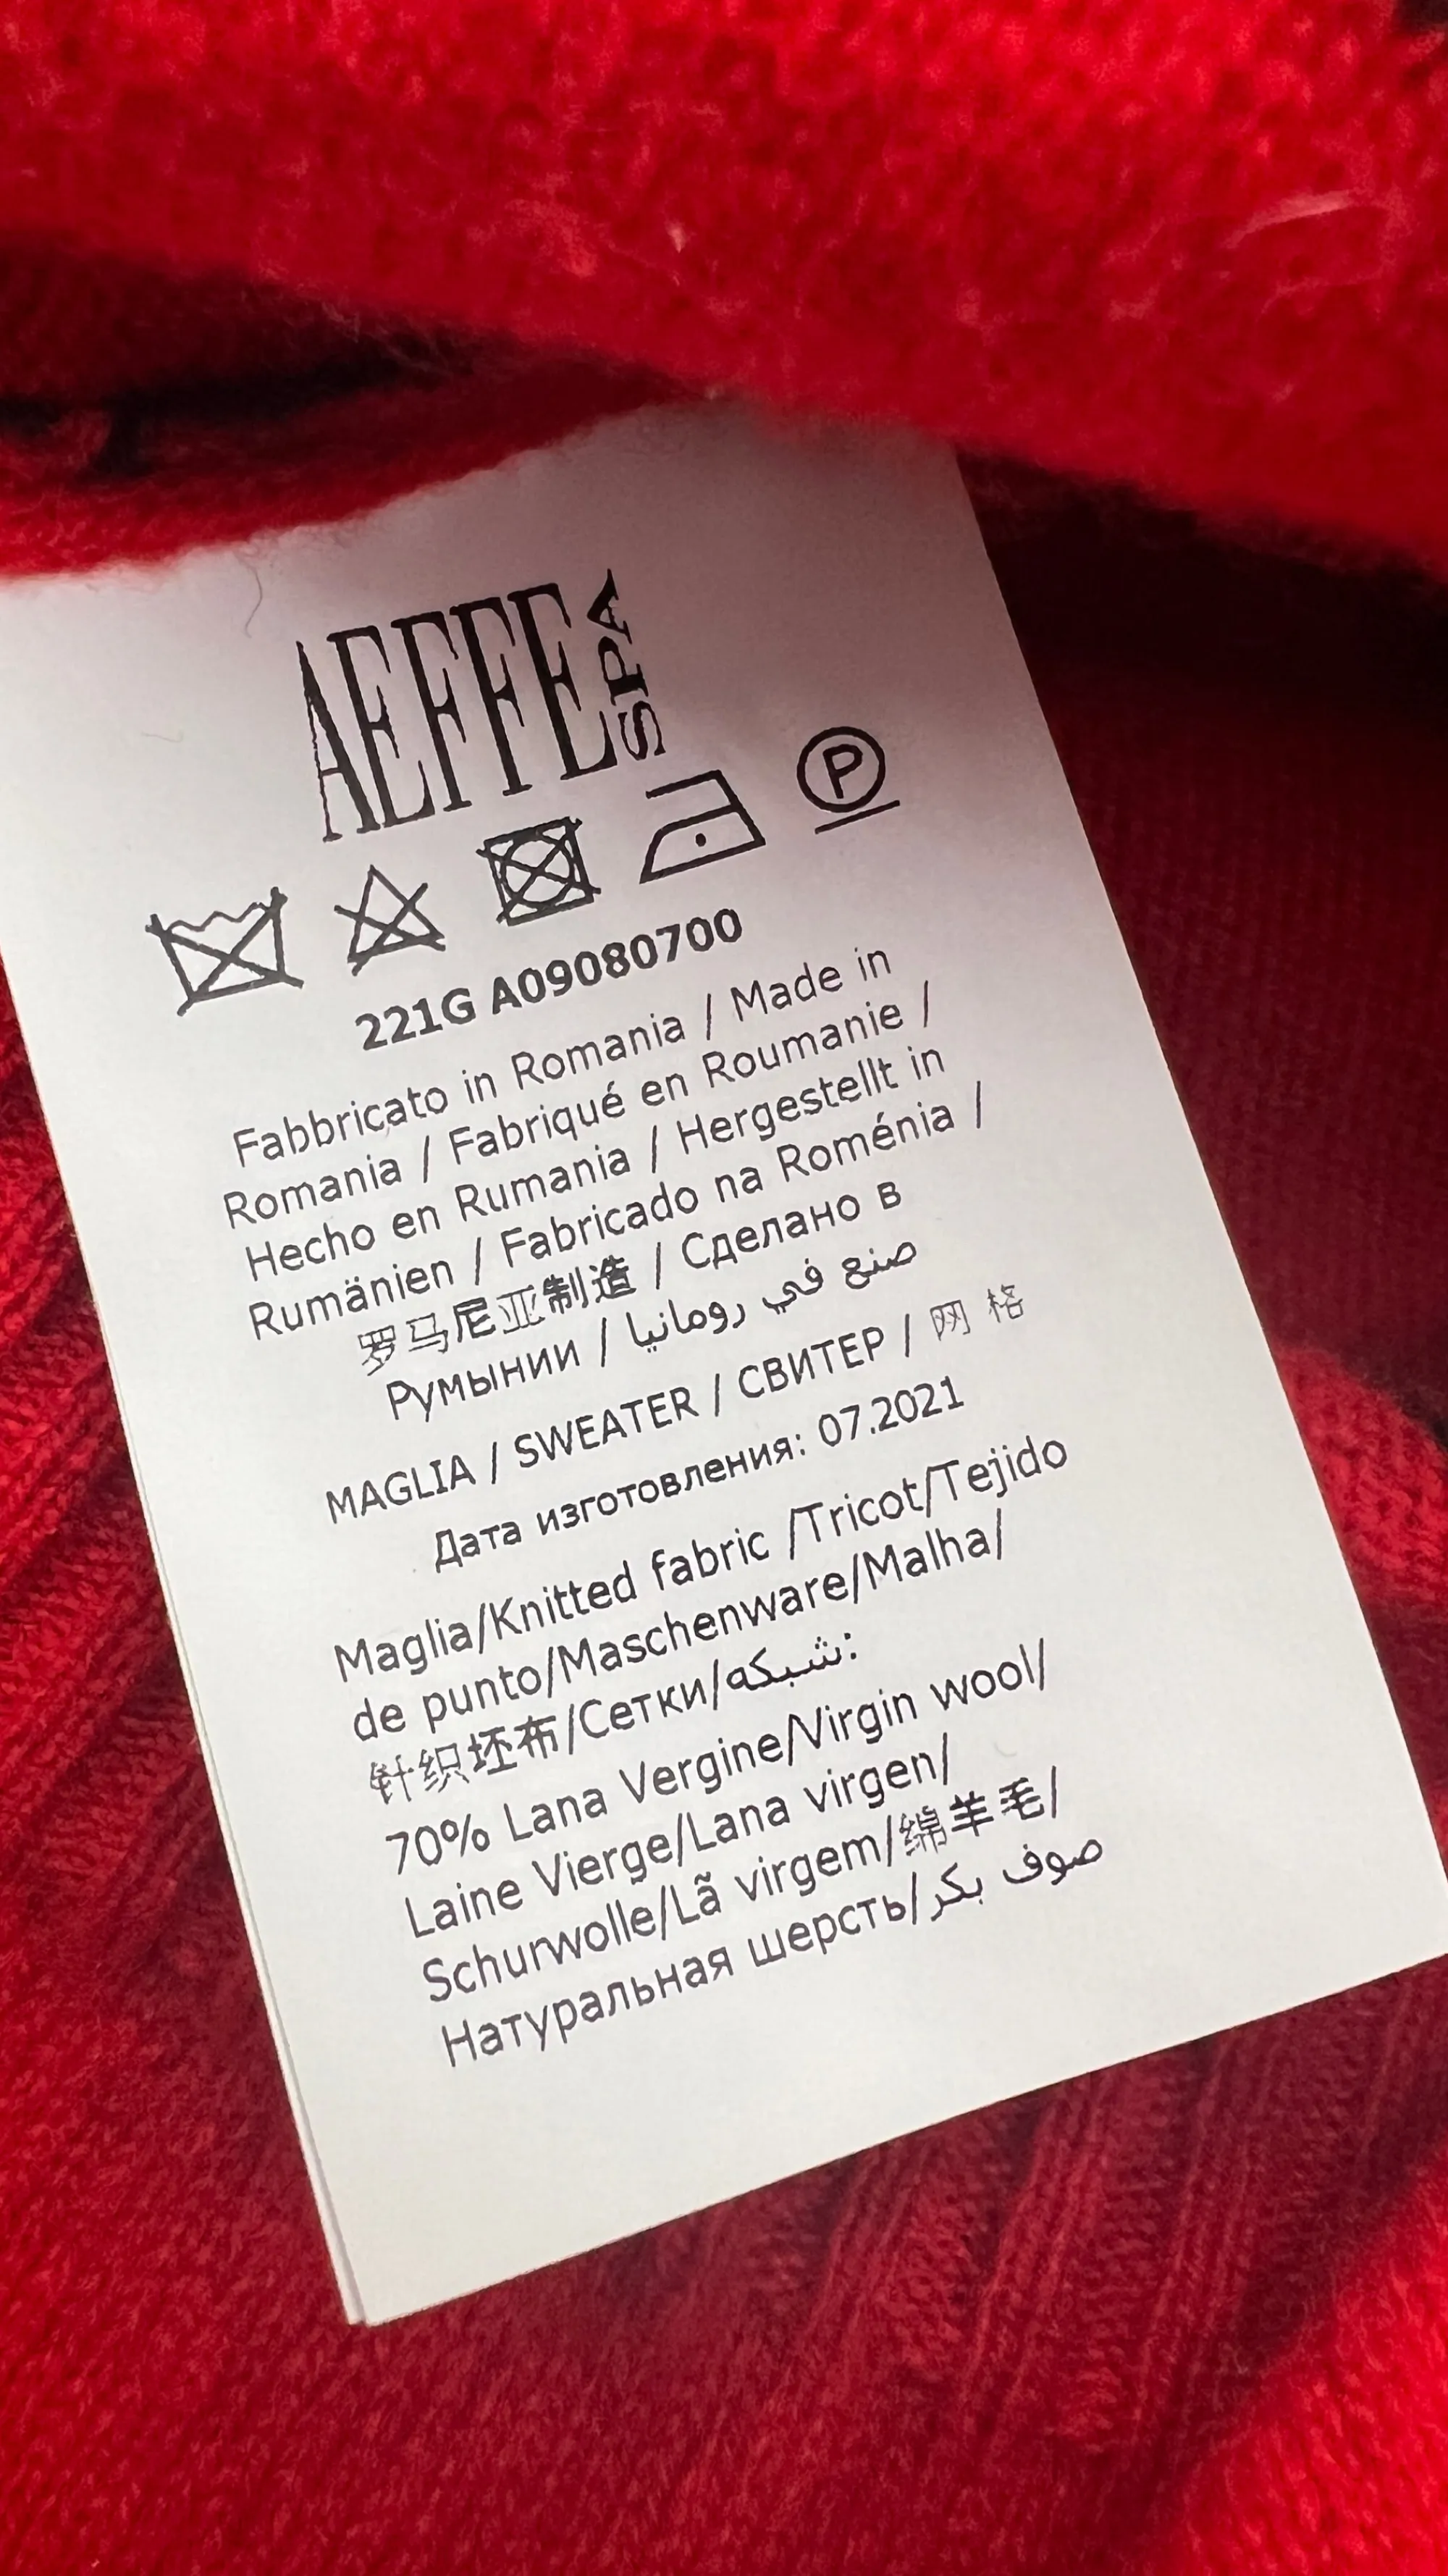 AEFFE SPA
P
221G A09080700
Fabbricato in Romania / Made in
Romania / Fabriqué en Roumanie /
Hecho en Rumania / Hergestellt in
Rumänien / Fabricado na Roménia /
罗马尼亚制造 / Сделано в
Румынии / صنع في رومانيا
MAGLIA / SWEATER / СВИТЕР / 网 格
Дата изготовления: 07.2021
Maglia/Knitted fabric /Tricot/Tejido
de punto/Maschenware/Malha/
针织坯布/Сетки/شبكه:
70% Lana Vergine/Virgin wool/
Laine Vierge/Lana virgen/
Schurwolle/Lã virgem/绵羊毛/
Натуральная шерсть/صوف بكر